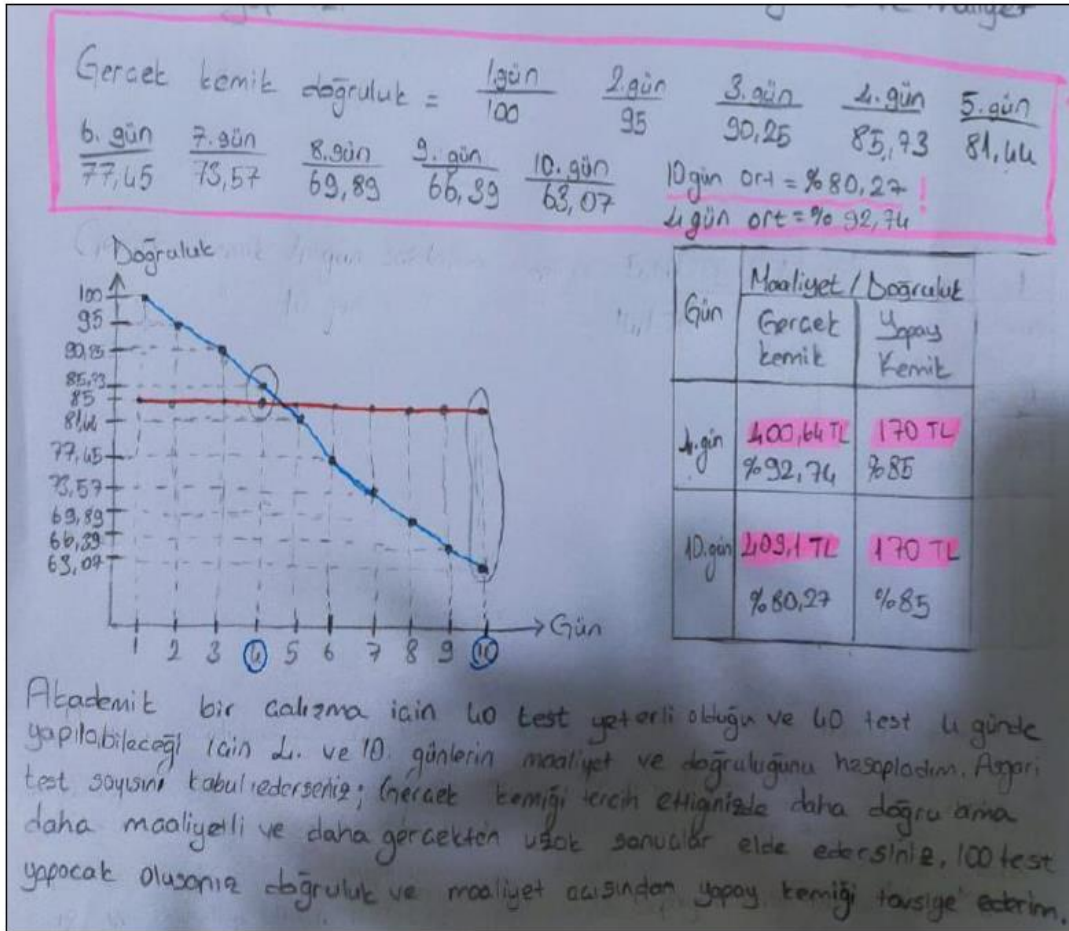 Gerçek kemik doğruluk = 1.gün 2.gün 3.gün 4.gün 5.gün
100 95 90,25 85,73 81,44
6. gün 7.gün 8.gün 9.gün 10.gün
77,45 73,57 69,89 66,39 63,07
10gün ort = %80,27 !
4 gün ort = % 92,74
Doğruluk
100
95
90,25
85,73
85
81,44
77,45
73,57
69,89
66,39
63,07
1 2 3 4 5 6 7 8 9 10
Gün
Gün
Maaliyet / Doğruluk
Gerçek kemik
Yapay Kemik
4.gün 400,64 TL 170 TL
%92,74 %85
10.gün 409,1 TL 170 TL
%80,27 %85
Akademik bir çalızma için 40 test yeterli olduğu ve 40 test 4 günde
yapılabileceği için 4. ve 10. günlerin maaliyet ve doğruluğunu hesapladım. Asgari
test sayısını kabul ederseniz; Gerçek kemiği tercih ettiğinizde daha doğru ama
daha maaliyetli ve daha gerçekten uzak sonuclar elde edersiniz. 100 test
yapacak olusanız doğruluk ve maaliyet acısından yapay kemiği tavsiye ederim.